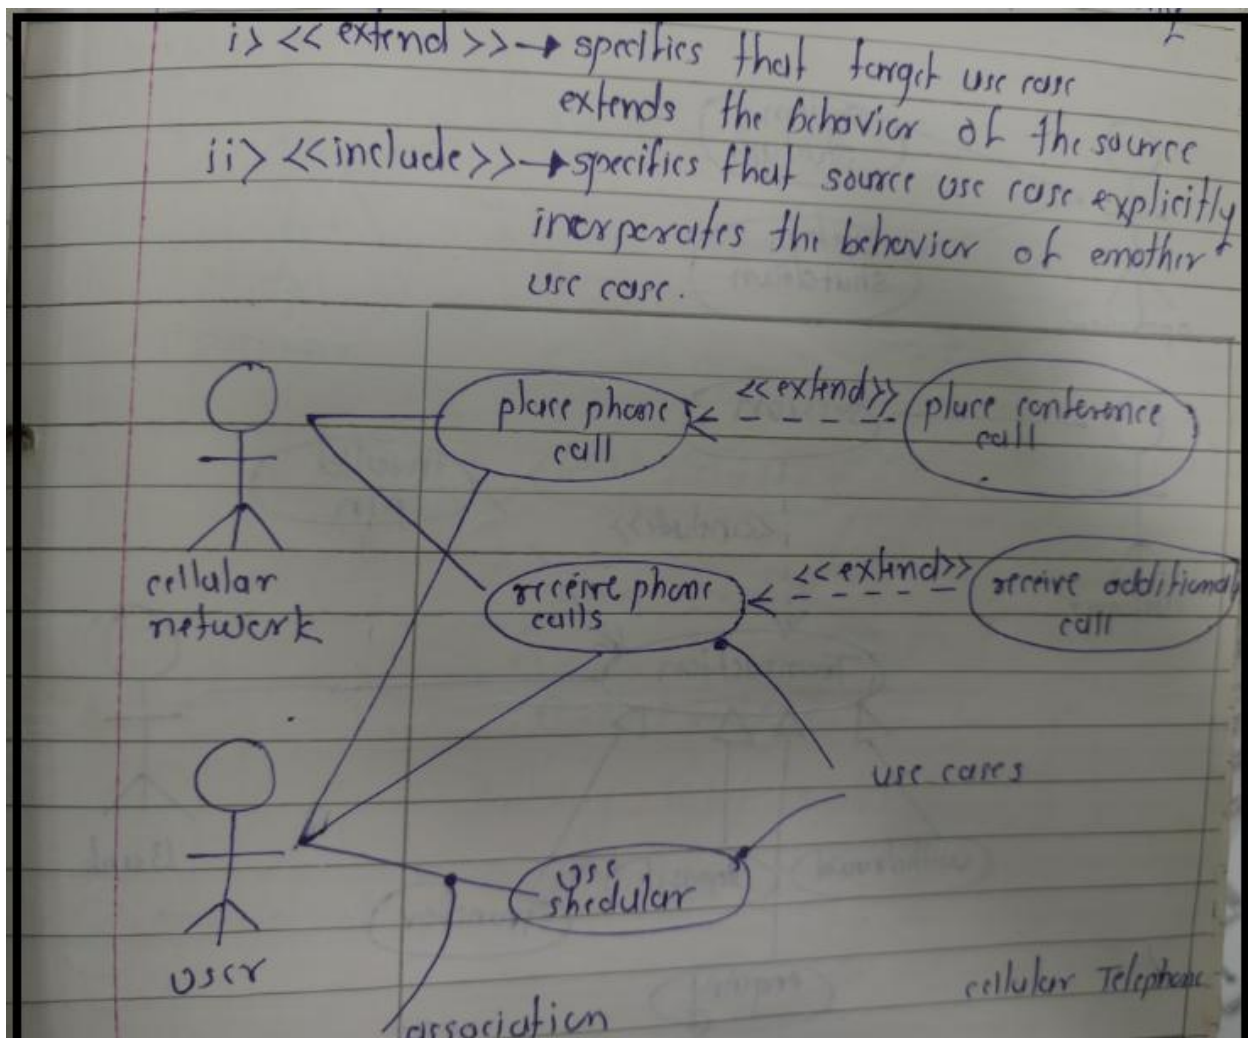 i> << extend >> → specifies that target use case
extends the behavior of the source
ii> <<include>> → specifies that source use case explicitly
incorporates the behavior of emother
use case.
place phone
call
<<extend>>
place conference
call
cellular
network
receive phone
calls
<<extend>>
receive additional
call
use cases
use
shedular
user
cellular Telephone
association